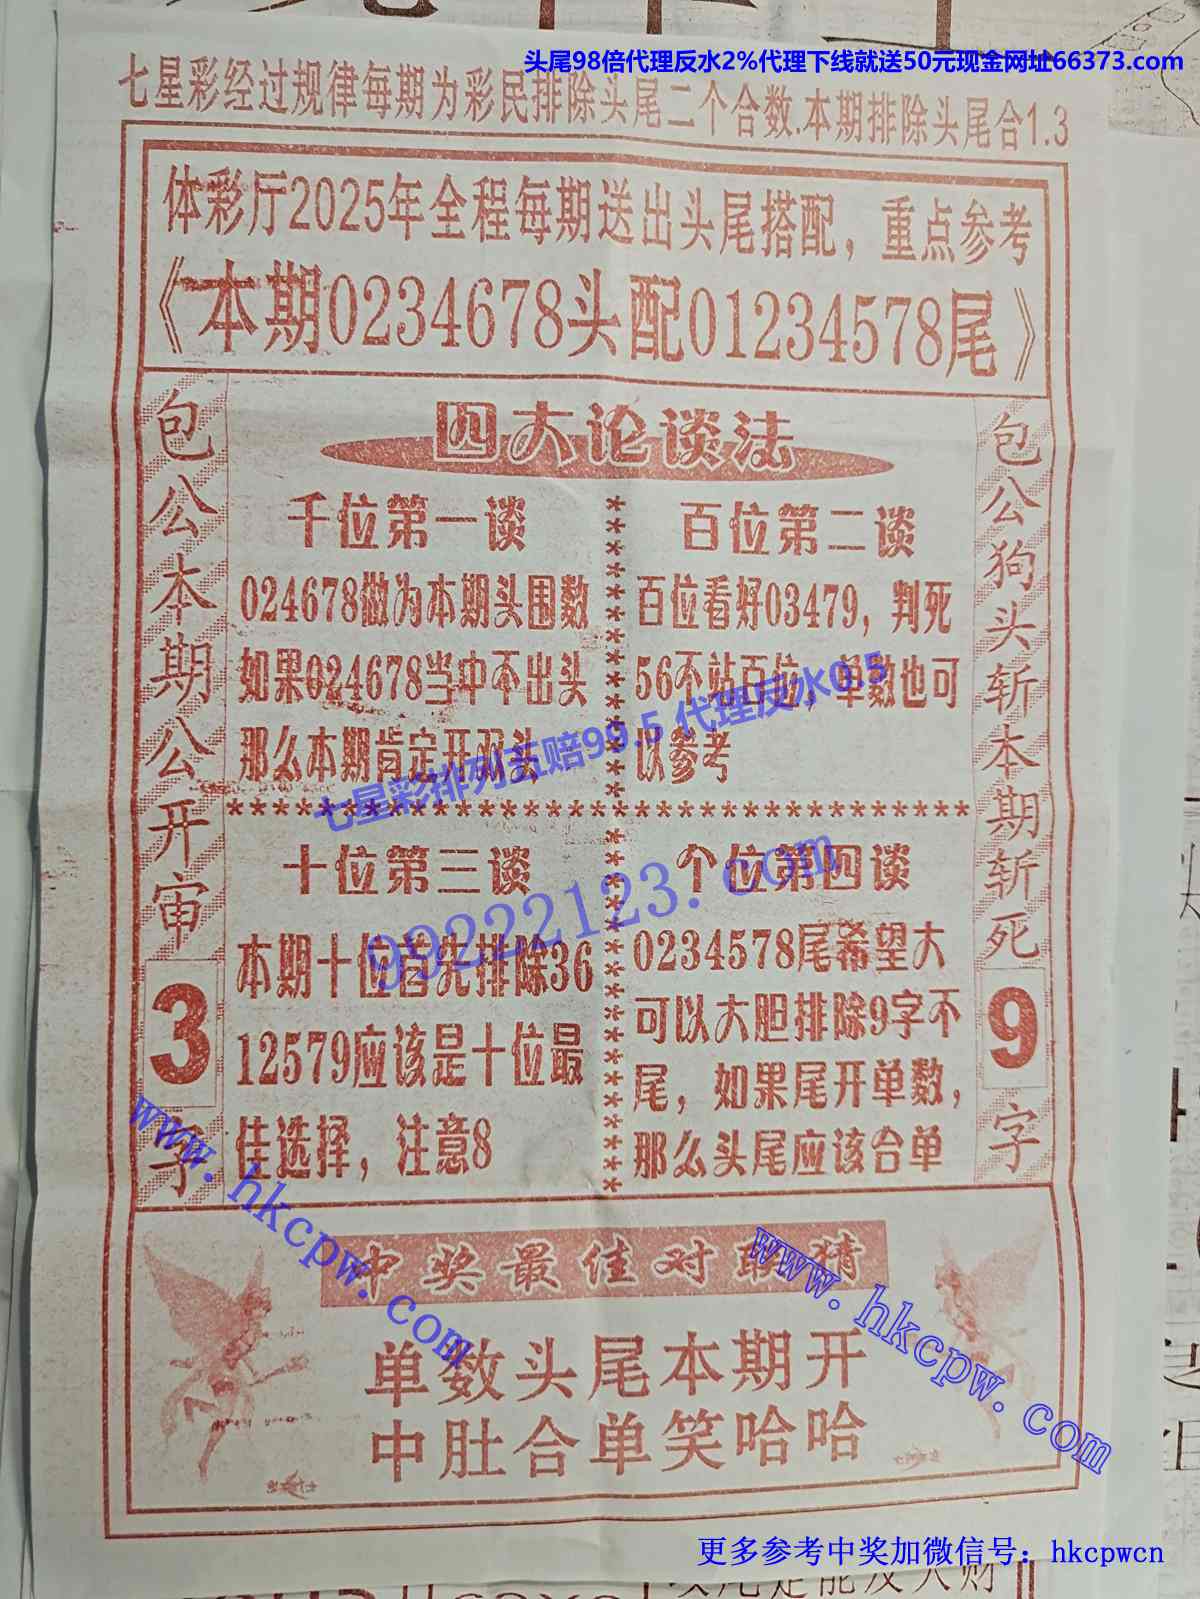 头尾98倍代理反水2%代理下线就送50元现金网址66373.com
七星彩经过规律每期为彩民排除头尾二个合数.本期排除头尾合1.3
体彩厅2025年全程每期送出头尾搭配，重点参考
《本期0234678头配01234578尾》
包公本期公开审3字
四大论谈法
千位第一谈
024678做为本期头围数
如果024678当中不出头
那么本期肯定开双头
百位第二谈
百位看好03479，判死
56不站百位，单数也可
以参考
七星彩排列五赔99.5 代理反水0.5
十位第三谈
本期十位首先排除36
12579应该是十位最
佳选择，注意8
个位第四谈
0234578尾希望大
可以大胆排除9字不
尾，如果尾开单数，
那么头尾应该合单
99222123.com
包公狗头斩本期斩死9字
www.hkcpw.com
www.hkcpw.com
中奖最佳对联猜
单数头尾本期开
中肚合单笑哈哈
更多参考中奖加微信号：hkcpwcn